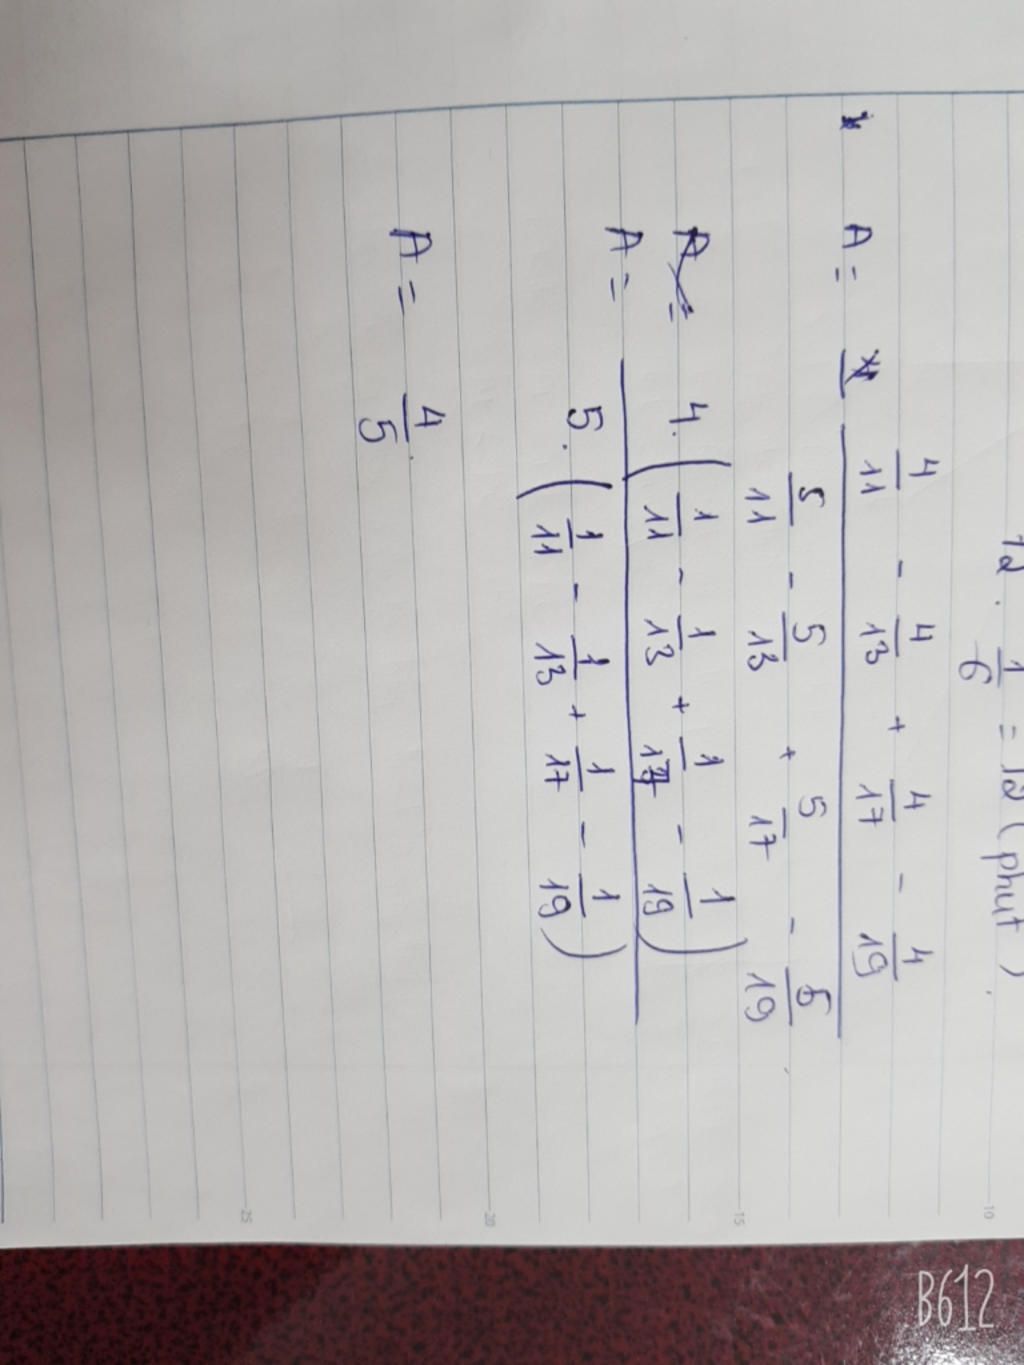 12 . 1/6 = 12 (phut)
A = 4/11 - 4/13 + 4/17 - 4/19
5/11 - 5/13 + 5/17 - 5/19
A = 4. (1/11 - 1/13 + 1/17 - 1/19)
A =
5. (1/11 - 1/13 + 1/17 - 1/19)
A = 4/5.
10
15
20
25
B612